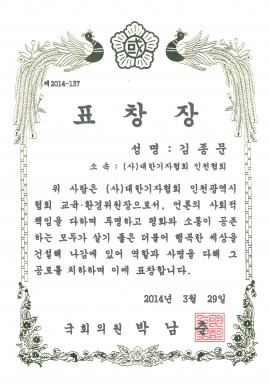 제2014-137
표창장
성명 : 김종문
소속 : (사)대한기자협회 인천협회
위 사람은 (사)대한기자협회 인천광역시
협회 교육·환경위원장으로서, 언론의 사회적
책임을 다하며 투명하고 평화와 소통이 공존
하는 모두가 살기 좋은 더불어 행복한 세상을
건설해 나감에 있어 역할과 사명을 다해 그
공로를 치하하며 이에 표창합니다.
2014년 3월 29일
국회의원 박남춘